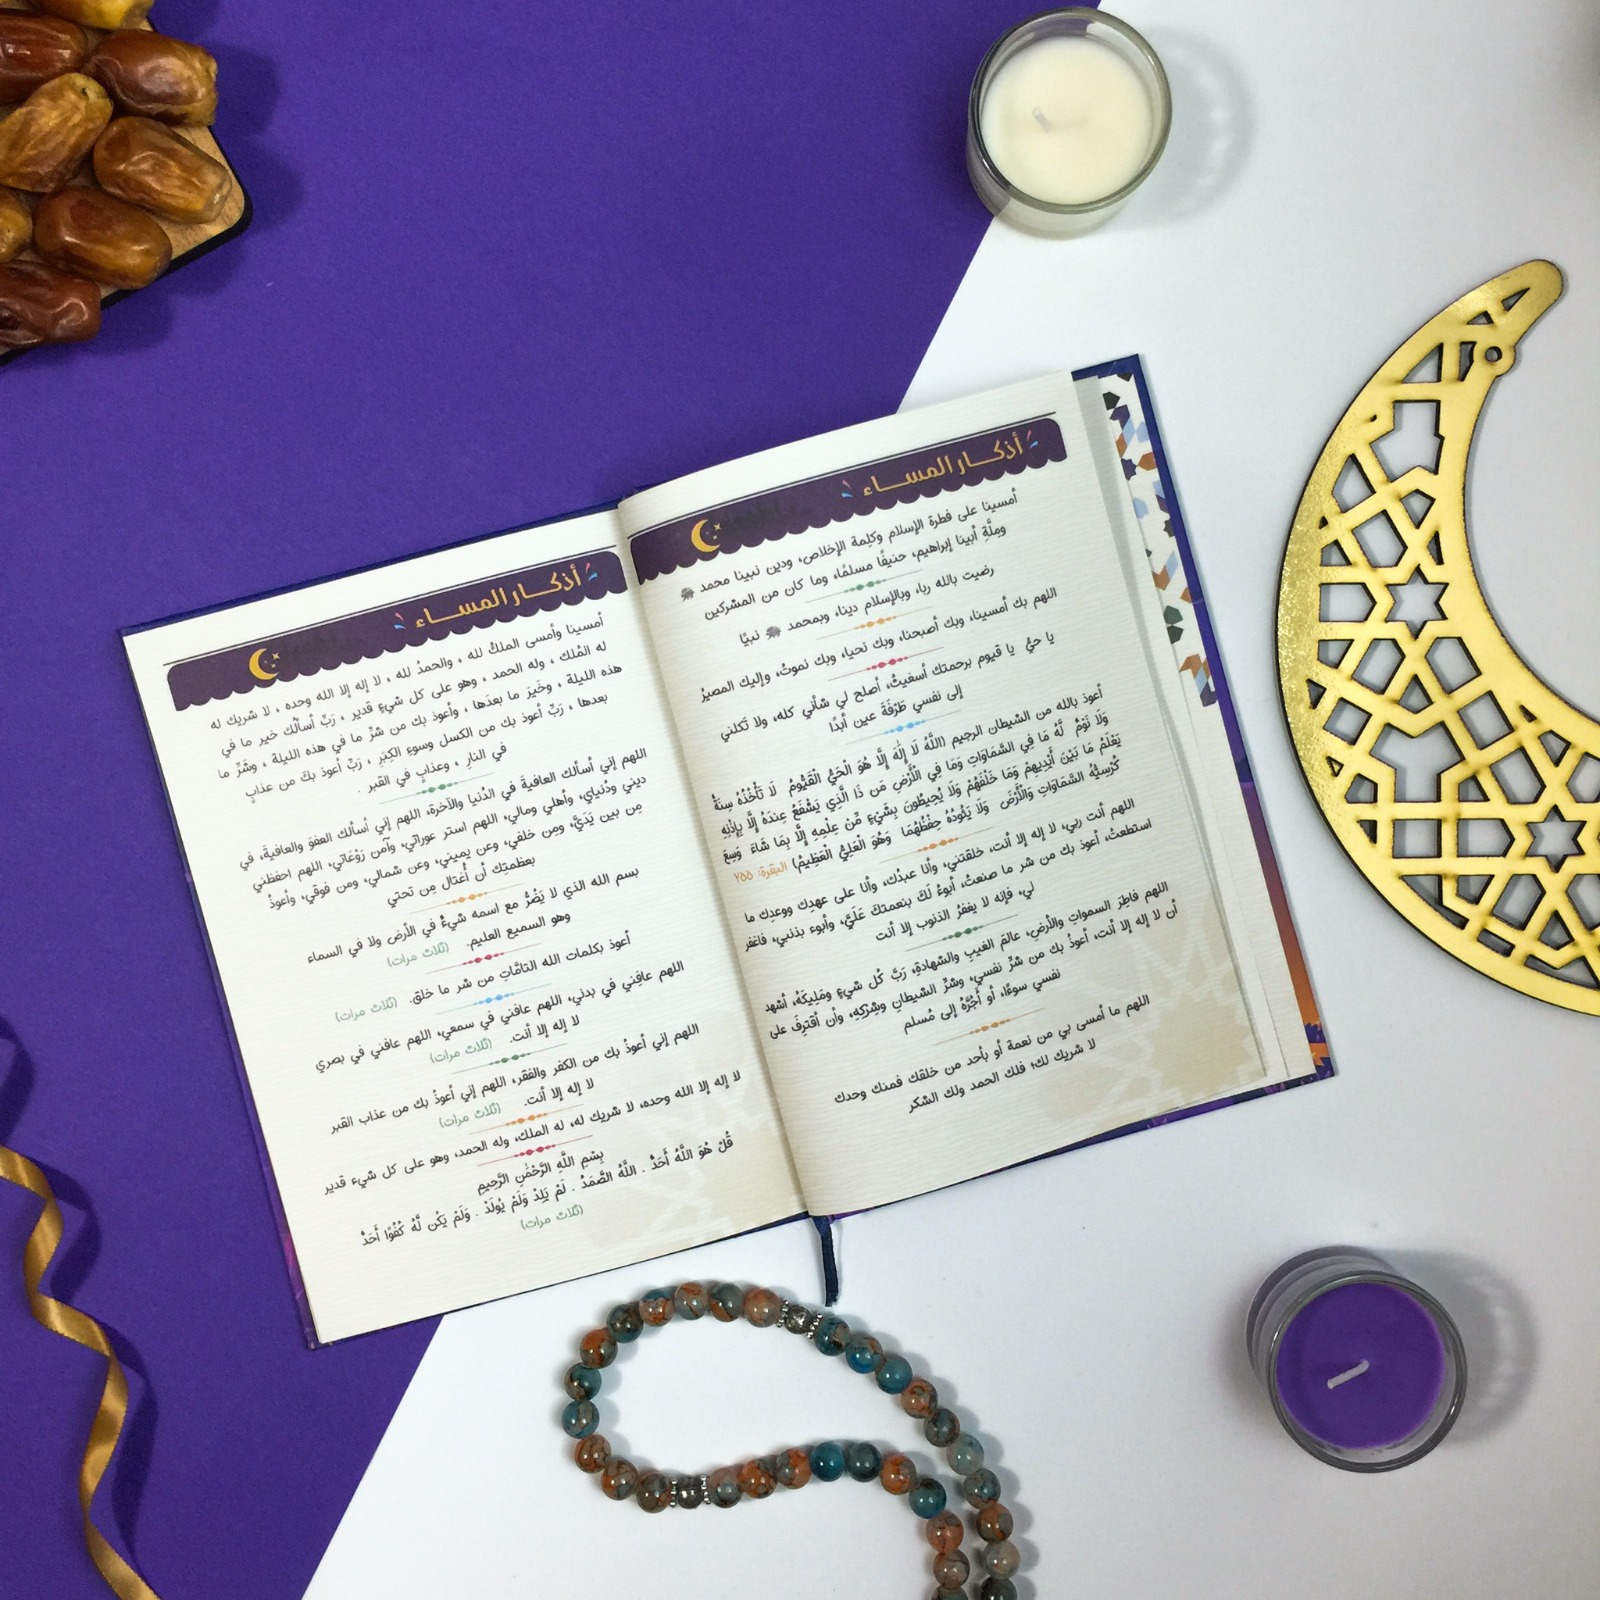 أذكـــار المســـاء
أمسينا على فطرة الإسلام وكلمة الإخلاص، ودين نبينا محمد ﷺ
وملَّةِ أبينا إبراهيم، حنيفًا مسلمًا، وما كان من المشركين
رضيت بالله ربا، وبالإسلام دينا، وبمحمد ﷺ نبيًا
اللهم بك أمسينا، وبك أصبحنا، وبك نحيا، وبك نموتُ، وإليك المصيرُ
يا حيُّ يا قيوم برحمتك أستغيثُ، أصلح لي شأني كله، ولا تكلني
إلى نفسي طَرْفَةَ عين أبدًا
أعوذ بالله من الشيطان الرجيم (اللَّهُ لَا إِلَٰهَ إِلَّا هُوَ الْحَيُّ الْقَيُّومُ لَا تَأْخُذُهُ سِنَةٌ
وَلَا نَوْمٌ لَّهُ مَا فِي السَّمَاوَاتِ وَمَا فِي الْأَرْضِ مَن ذَا الَّذِي يَشْفَعُ عِندَهُ إِلَّا بِإِذْنِهِ
يَعْلَمُ مَا بَيْنَ أَيْدِيهِمْ وَمَا خَلْفَهُمْ وَلَا يُحِيطُونَ بِشَيْءٍ مِّنْ عِلْمِهِ إِلَّا بِمَا شَاءَ وَسِعَ
كُرْسِيُّهُ السَّمَاوَاتِ وَالْأَرْضَ وَلَا يَئُودُهُ حِفْظُهُمَا وَهُوَ الْعَلِيُّ الْعَظِيمُ) البقرة: ٢٥٥
اللهم أنت ربي، لا إله إلا أنت، خلقتني، وأنا عبدُك، وأنا على عهدِك ووعدِك ما
استطعتُ، أعوذ بك من شر ما صنعتُ، أبوءُ لَكَ بنعمتكَ عَلَيَّ، وأبوء بذنبي، فاغفر
لي، فإنه لا يغفرُ الذنوب إلا أنت
اللهم فاطِرَ السمواتِ والأرضِ، عالمَ الغيبِ والشهادةِ، رَبَّ كُل شيءٍ ومَلِيكَهُ، أشهد
أن لا إله إلا أنت، أعوذُ بك من شرِّ نفسي، وشرِّ الشيطانِ وشِرْكِهِ، وأن أقترِفَ على
نفسي سوءًا، أو أجُرَّهُ إلى مُسلم
اللهم ما أمسى بي من نعمة أو بأحد من خلقك فمنك وحدك
لا شريك لك؛ فلك الحمد ولك الشكر
أذكـــار المســـاء
أمسينا وأمسى الملكُ لله ، والحمدُ لله ، لا إله إلا الله وحده ، لا شريك له
له المُلك ، وله الحمد ، وهو على كل شيءٍ قدير ، رَبِّ أسألُك خير ما في
هذه الليلة ، وخَيرَ ما بعدَها ، وأعوذ بك من شرِّ ما في هذه الليلة ، وشَرِّ ما
بعدها ، رَبِّ أعوذ بك من الكسل وسوءِ الكِبَرِ ، رَبِّ أعوذ بكَ من عذابٍ
في النارِ ، وعذابٍ في القبر .
اللهم إني أسألك العافيةَ في الدُنيا والآخرة، اللهم إني أسألك العفوَ والعافيةَ، في
ديني ودُنياي، وأهلي ومالي، اللهم استر عوراتي، وآمن رَوْعَاتي، اللهم احفظني
مِن بين يَدَيَّ، ومن خلفي، وعن يميني، وعن شمالي، ومن فوقي، وأعوذُ
بعظمتِك أن أُغتال مِن تحتي
بسم الله الذي لا يَضُرُّ مع اسمه شيءٌ في الأرض ولا في السماء
وهو السميع العليم. (ثلاث مرات)
أعوذ بكلمات الله التامَّاتِ من شر ما خلق. (ثلاث مرات)
اللهم عافِني في بدني، اللهم عافني في سمعي، اللهم عافني في بصري
لا إله إلا أنت. (ثلاث مرات)
اللهم إني أعوذُ بك من الكفر والفقر، اللهم إني أعوذُ بك من عذاب القبر
لا إله إلا أنت. (ثلاث مرات)
لا إله إلا الله وحده، لا شريك له، له الملك، وله الحمد، وهو على كل شيء قدير
بِسْمِ اللَّهِ الرَّحْمَٰنِ الرَّحِيمِ
قُلْ هُوَ اللَّهُ أَحَدٌ . اللَّهُ الصَّمَدُ . لَمْ يَلِدْ وَلَمْ يُولَدْ . وَلَمْ يَكُن لَّهُ كُفُوًا أَحَدٌ
(ثلاث مرات)